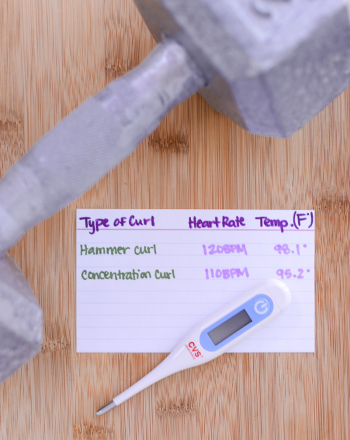 Type of Curl Heart Rate Temp. (F°)
Hammer Curl 120BPM 98.1°
Concentration Curl 110BPM 95.2°
CVS